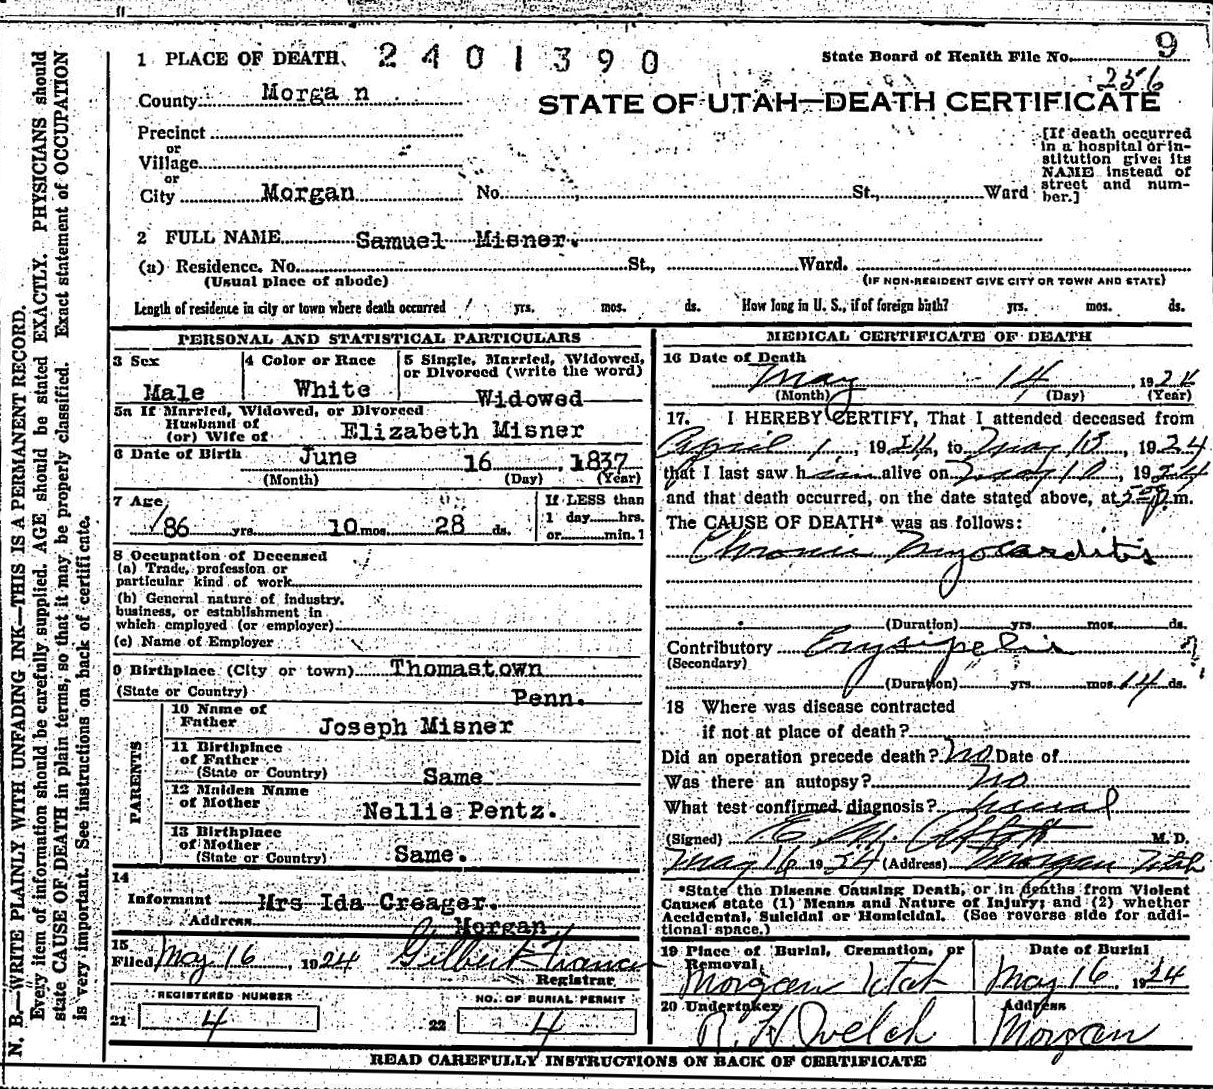 1 PLACE OF DEATH. 2401390 State Board of Health File No. 9
256
County Morgan STATE OF UTAH—DEATH CERTIFICATE
Precinct
or
Village
or
City Morgan No. St., Ward
[If death occurred
in a hospital or in-
stitution give its
NAME instead of
street and num-
ber.]
2 FULL NAME Samuel Misner.
(a) Residence. No. St., Ward.
(Usual place of abode) (IF NON-RESIDENT GIVE CITY OR TOWN AND STATE)
Length of residence in city or town where death occurred yrs. mos. ds. How long in U. S., if of foreign birth? yrs. mos. ds.
PERSONAL AND STATISTICAL PARTICULARS
3 Sex
Male
4 Color or Race
White
5 Single, Married, Widowed,
or Divorced (write the word)
Widowed
5a If Married, Widowed, or Divorced
Husband of
(or) Wife of Elizabeth Misner
6 Date of Birth June 16, 1837
(Month) (Day) (Year)
7 Age
86 yrs. 10 mos. 28 ds.
If LESS than
1 day hrs.
or min.?
8 Occupation of Deceased
(a) Trade, profession or
particular kind of work
(b) General nature of industry,
business, or establishment in
which employed (or employer)
(c) Name of Employer
9 Birthplace (City or town) Thomastown
(State or Country) Penn.
PARENTS
10 Name of
Father Joseph Misner
11 Birthplace
of Father
(State or Country) Same
12 Maiden Name
of Mother Nellie Pentz.
13 Birthplace
of Mother
(State or Country) Same.
14
Informant Mrs Ida Creager.
Address Morgan
15
Filed May 16, 1924 Gilbert Francis
Registrar
REGISTERED NUMBER
21 4
NO. OF BURIAL PERMIT
22 4
MEDICAL CERTIFICATE OF DEATH
16 Date of Death
May 14, 1924
(Month) (Day) (Year)
17. I HEREBY CERTIFY, That I attended deceased from
April 1, 1924, to May 13, 1924
that I last saw him alive on May 10, 1924
and that death occurred, on the date stated above, at 5 p.m.
The CAUSE OF DEATH* was as follows:
Chronic Myocarditis
(Duration) yrs. mos. ds.
Contributory Erysipelis
(Secondary)
(Duration) yrs. mos. 14 ds.
18 Where was disease contracted
if not at place of death?
Did an operation precede death? No Date of
Was there an autopsy? No
What test confirmed diagnosis? usual
(Signed) M. D.
May 16 1924 (Address) Morgan Utah
*State the Disease Causing Death, or in deaths from Violent
Causes state (1) Means and Nature of Injury; and (2) whether
Accidental, Suicidal or Homicidal. (See reverse side for addi-
tional space.)
19 Place of Burial, Cremation, or
Removal
Morgan Utah
Date of Burial
May 16 1924
20 Undertaker
R. H. Welch
Address
Morgan
READ CAREFULLY INSTRUCTIONS ON BACK OF CERTIFICATE
N. B.—WRITE PLAINLY WITH UNFADING INK—THIS IS A PERMANENT RECORD.
Every item of information should be carefully supplied. AGE should be stated EXACTLY. PHYSICIANS should
state CAUSE OF DEATH in plain terms, so that it may be properly classified. Exact statement of OCCUPATION
is very important. See instructions on back of certificate.